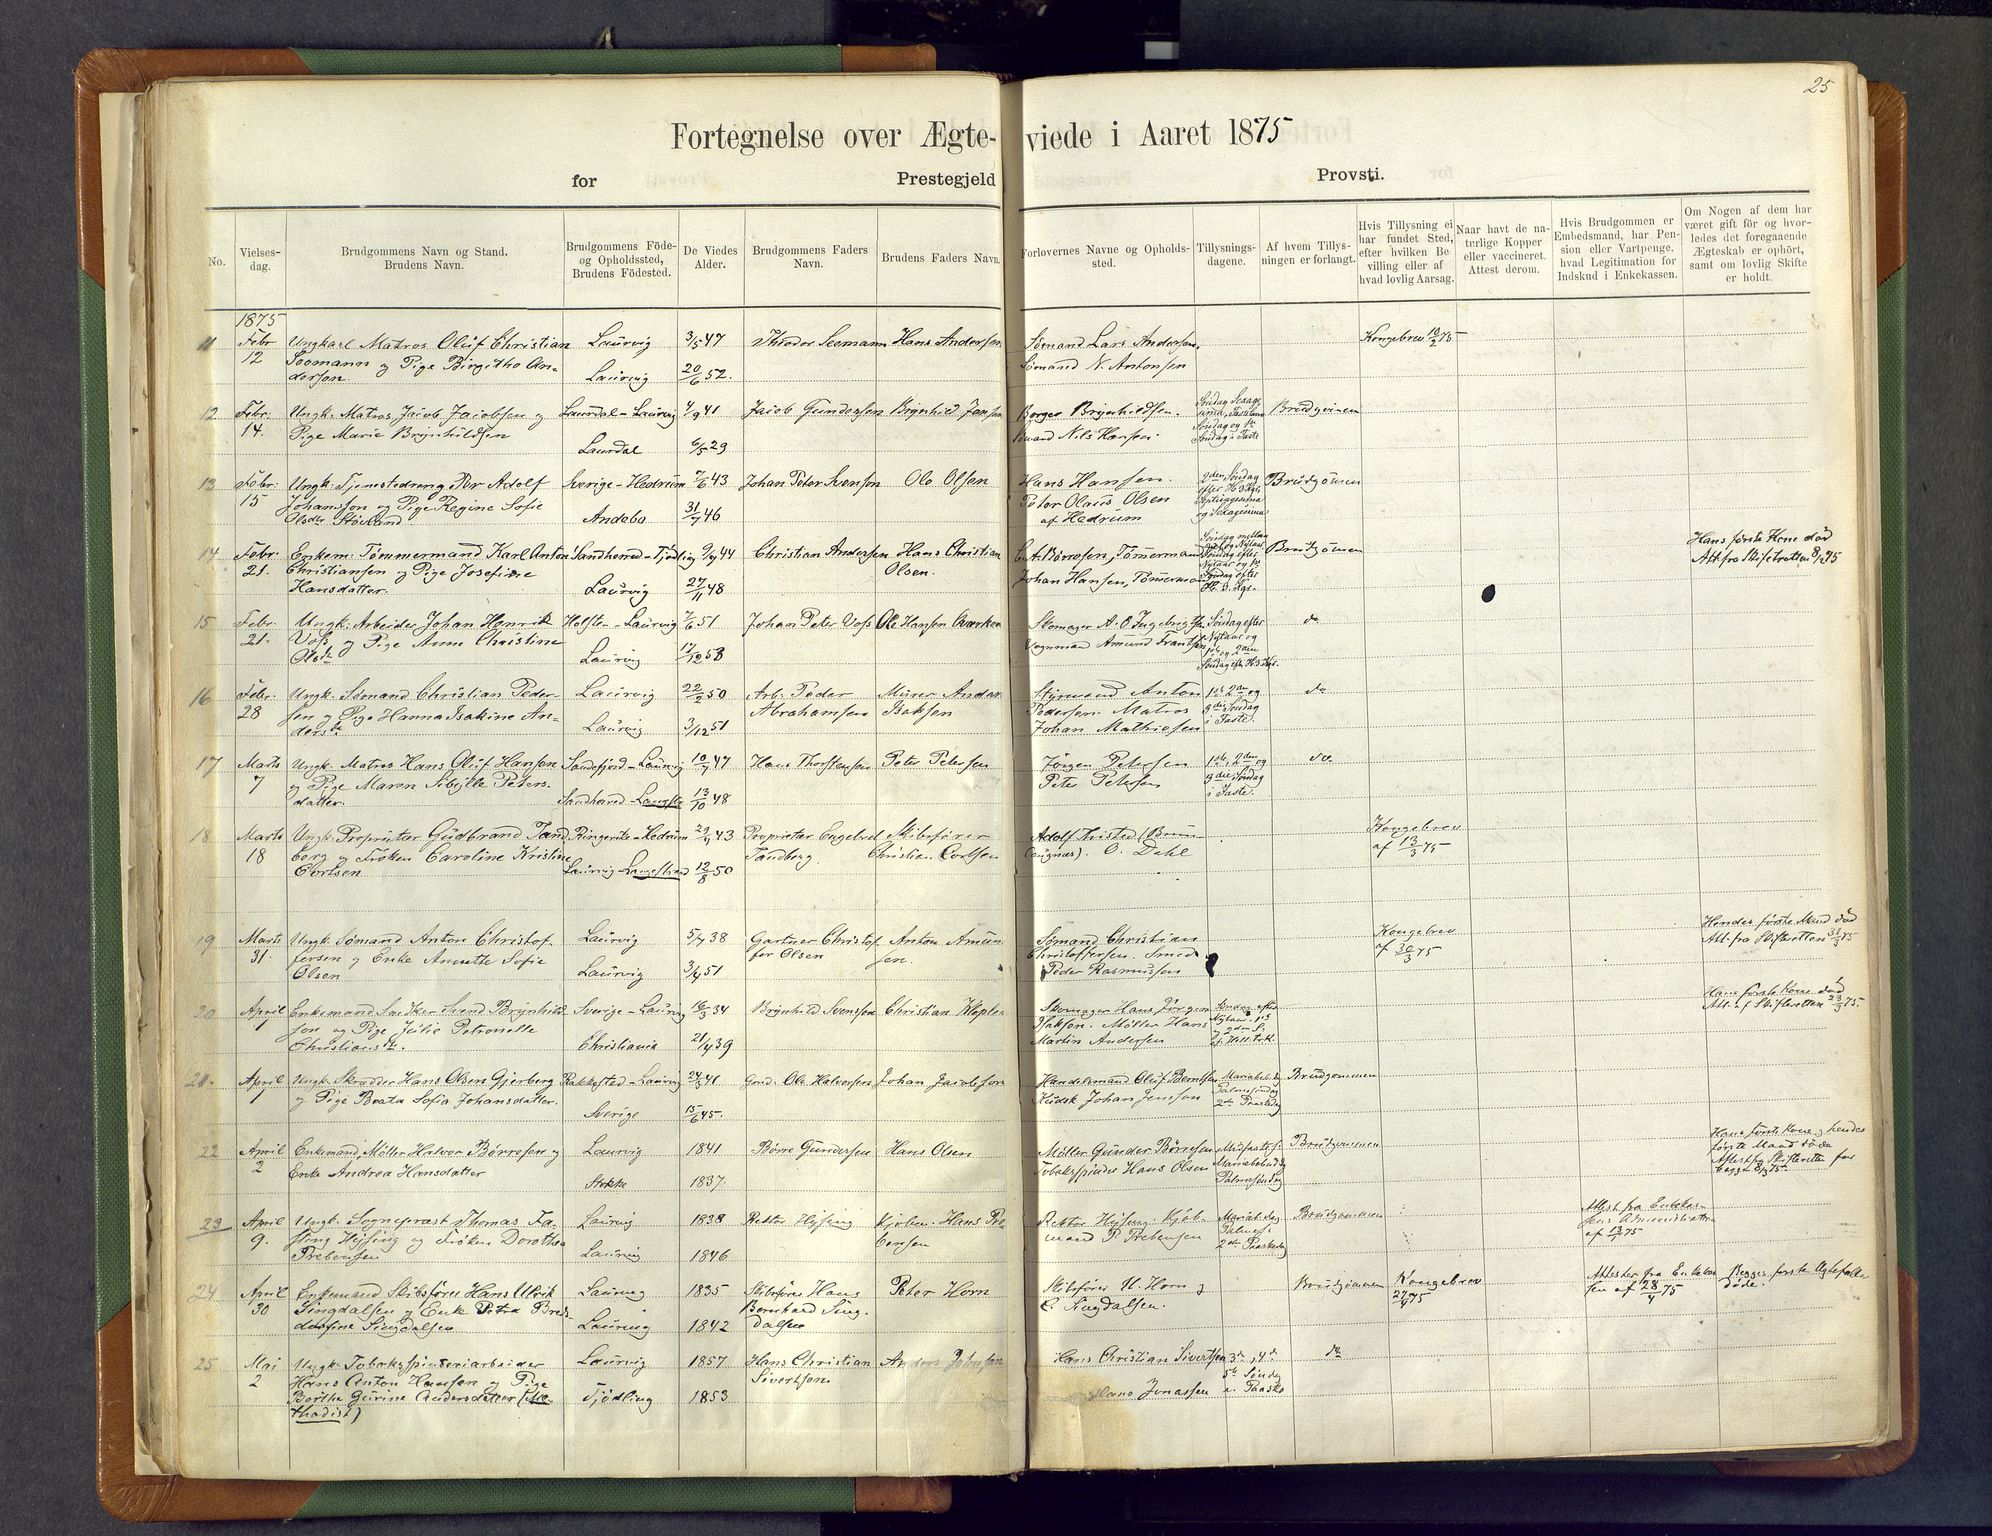 25
Fortegnelse over Ægte- viede i Aaret 1875
for Prestegjeld Provsti.
No.
Vielses-
dag.
Brudgommens Navn og Stand.
Brudens Navn.
Brudgommens Föde-
og Opholdssted,
Brudens Födested.
De Viedes
Alder.
Brudgommens Faders
Navn.
Brudens Faders Navn.
Forlovernes Navne og Opholds-
sted.
Tillysnings-
dagene.
Af hvem Tillys-
ningen er forlangt.
Hvis Tillysning ei
har fundet Sted,
efter hvilken Be-
villing eller af
hvad lovlig Aarsag.
Naar havt de na-
terlige Kopper
eller vaccineret.
Attest derom.
Hvis Brudgommen er
Embedsmand, har Pen-
sion eller Vartpenge.
hvad Legitimation for
Indskud i Enkekassen.
Om Nogen af dem har
været gift för og hvor-
ledes det foregaaende
Ægteskab er ophört,
samt om lovlig Skifte
er holdt.
1875
11 Febr 12 Ungkarl Matros Oluf Christian
Seemann og Pige Birgithe An-
dersen.
Laurvig 3/5 47
Laurvig 20/6 52.
Theodor Seemann Hans Andersen
Sömand Lars Andersen,
Sömand N. Antonsen
Kongebrev 10/2 75
12 Febr. 14. Ungk. Matros Jacob Jacobsen og
Pige Marie Brynhildsen
Laurdal - Laurvig 4/9 41
Laurdal 6/5 29
Jacob Gundersen Brynhild Jensen
Borger Brynhildsen.
Sömand Nils Hansen.
Brudgommen
13 Febr. 15 Ungk. Tjenestedreng Per Adolf
Johansson og Pige Regine Sofie
Olsdtr Stövland
Sverige - Hedrum 7/6 43
Andebo 31/7 46
Johan Peter Svenson Ole Olsen
Hans Hansen.
Peter Olaus Olsen
af Hedrum
2den Söndag
efter H 3 Kgr,
Septuagesima
og Sexagesima
Brudgommen
14 Febr. 21. Enkem. Tömmermand Karl Anton
Christiansen og Pige Josefine
Hansdatter.
Sandherred - Tjödling 9/4 44
Laurvig 27/11 48
Christian Andersen Hans Christian
Olsen.
C. A. Börresen, Tömmermand
Johan Hansen, Tömmerm.
Brudgommen
Hans förste Kone död
Att. fra Skifteretten 8/1 75
15 Febr. 21. Ungk. Arbeider Johan Henrik
Voss og Pige Anne Christine
Olsdtr
Holsten - Laurvig 7/6 51
Laurvig 17/12 53
Johan Peter Voss Ole Hansen
Skomager A. O. Ingebrigtsen
Vognmand Amund Frantsen
Söndag efter
Nytaar og
1ste og 2den
Söndag eft. H 3 Kgr.
do
16 Febr. 28 Ungk. Sömand Christian Peder-
sen og Pige Hanna Isakine An-
dersdtr
Laurvig 22/2 50
Laurvig 3/12 51
Arb. Peder
Abrahamsen
Murer Anders
Isaksen
Styrmand Anton
Pedersen. Matros
Johan Mathiesen
1ste, 2den og
3die Söndag
i Faste.
do
17 Marts 7 Ungk. Matros Hans Oluf Hansen
og Pige Maren Sibylle Peders-
datter.
Sandefjord - Laurvig 10/7 47
Sandherred - Langestr. 13/10 48
Hans Thorstensen Peter Petersen
Jörgen Petersen
Peter Petersen
1ste, 2den og
3die Söndag
i Faste.
do
18 Marts 18 Ungk. Proprietær Gudbrand Tand-
berg og Fröken Caroline Kristine
Cortsen
Ringerike - Hedrum 29/4 43
Laurvig - Langestrand 12/8 50
Proprietær Engebret
Tandberg.
Skibsförer
Christian Cortsen
O. Dahl
Kongebrev
af 13/3 75
19 Marts 31. Ungk. Sömand Anton Christof-
fersen og Enke Annette Sofie
Olsen
Laurvig 5/7 38
Laurvig 3/4 51
Gartner Christof-
fer Olsen
Anton Amund-
sen.
Sömand Christian
Christoffersen. Smed
Peder Rasmussen
Kongebrev
af 30/3 75
Hendes förste Mand död
Att. fra Skifteretten 31/3 75
20 April 1 Enkemand Snedker Svend Brynhild-
sen og Pige Julie Petronelle
Christiansdtr.
Sverige - Laurvig 16/3 34
Christiania 21/4 39
Brynhild Svensen Christian
Skomager Hans Jörgen
Isaksen. Möller Hans
Martin Andersen
Hans förste Kone död
Att. af Skifteretten 23/3 75.
21. April 1 Ungk. Skrædder Hans Olsen Gjerberg
og Pige Beata Sofia Johansdatter.
Rakkestad - Laurvig 24/3 41
Sverige 15/6 45.
Gmd. Ole Halvorsen Johan Jacobsson
Handelsmand Oluf Berntsen
Kudsk Johan Jensson
Mariæbeb.dg
Palmesöndag
2den Paaskedg
Brudgommen
22 April 2 Enkemand, Möller Halvor Börresen og
Enke Andrea Hansdatter
Laurvig 1841
Stokke 1837.
Börre Gundersen Hans Olsen
Möller Gunder Börresen
Tobakspinder Hans Olsen
Midfastes.
Mariæbebud.dg
Palmesöndag
Brudgommen
Hans förste Kone og hendes
förste Mand döde
Attest fra Skifteretten for
begge 8/3 75
23 April 9. Ungk. Sognepræst Thomas Fa-
sting Hysing og Fröken Dorothea
Prebensen
Laurvig 1838
Laurvig 1846
Rektor Hysing Kjöbm. Hans Pre-
bensen
Rektor Hysing Kjöb-
mand P. Prebensen
Mariæb. dag
Palmes.
2den Paaskedg
Brudgommen
Attest fra Enkekas-
sens Administration
af 13/4 75
24 April 30 Enkemand Skibsförer Hans Ulrik
Singdalsen og Enke Petra Bred-
dorfine Singdalsen
Laurvig 1835
Laurvig 1842
Skibsförer Hans
Bernhard Sing-
dalsen
Peter Horn
Skibsförer U. Horn og
C. Singdalsen.
Brudgommen
Kongebrev
27/4 75
Attester fra Enkekas-
sen af 28/4 75
Begges förste Egtefæller
döde.
25 Mai 2 Ungk. Tobakspinderiarbeider
Hans Anton Hansen og Pige
Berthe Gurine Andersdatter (Me-
thodist)
Laurvig 1857
Tjödling 1853
Hans Christian
Sivertsen.
Anders Johnsen
Hans Christian Sivertsen
Hans Jonassen
3de, 4de
5te Söndg
e. Paaske
do